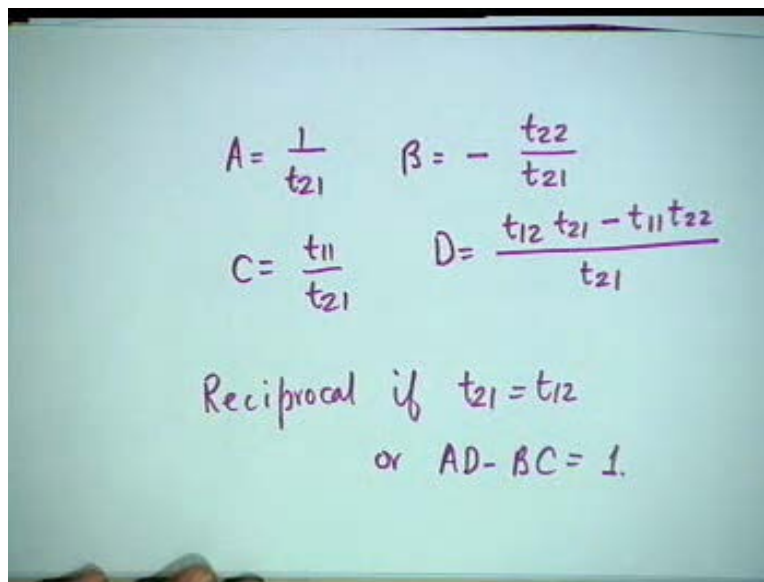 A = 1/t21 B = - t22/t21
C = t11/t21 D = (t12 t21 - t11 t22)/t21
Reciprocal if t21 = t12
or AD - BC = 1.